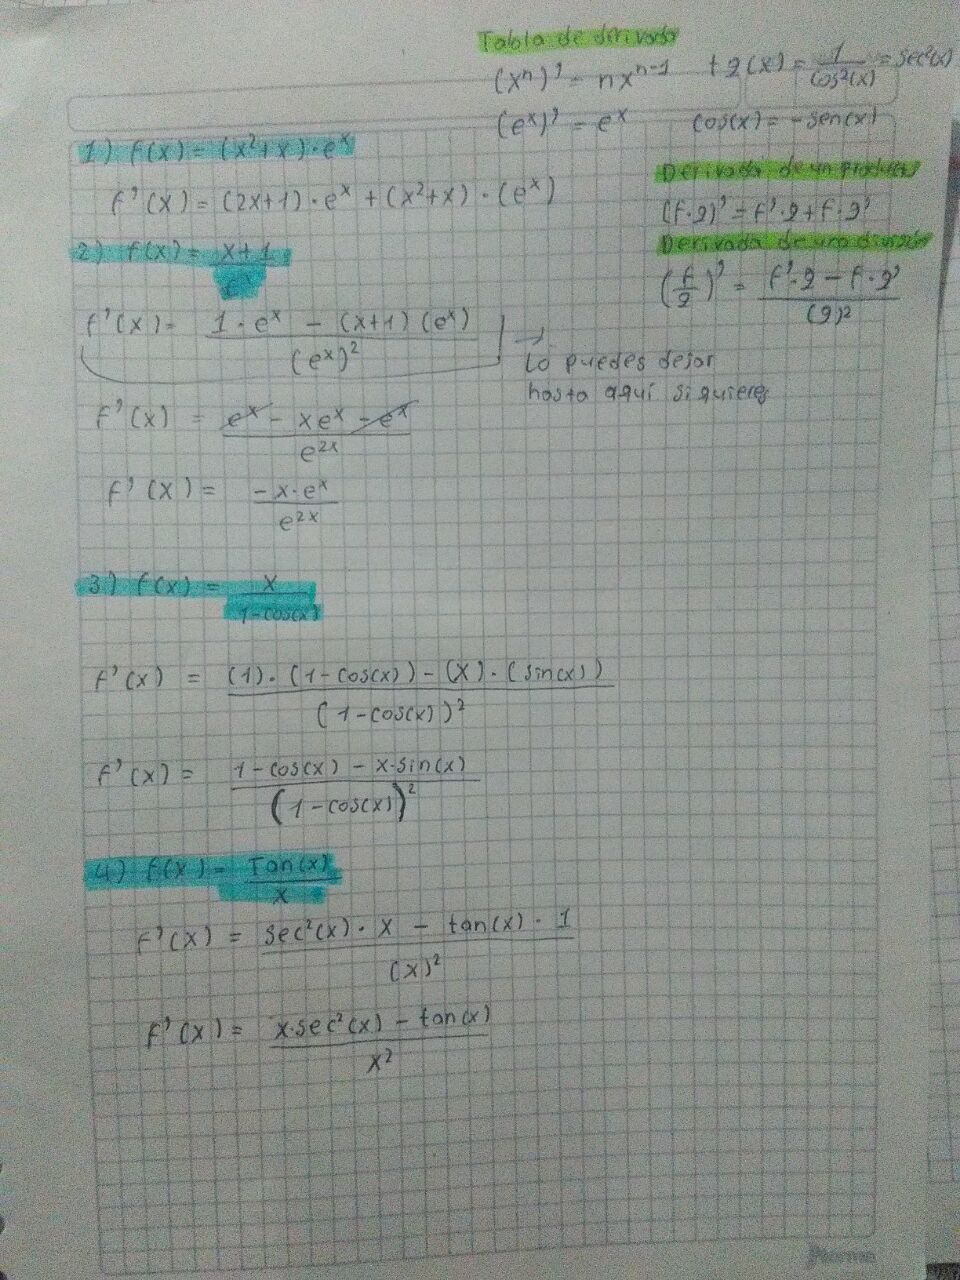 Tabla de derivada
(xⁿ)' = nxⁿ⁻¹
tg(x) = 1/cos²(x) = sec²(x)
(eˣ)' = eˣ
cos(x) = -sen(x)
Derivada de un producto
(f·g)' = f'·g + f·g'
Derivada de una división
(f/g)' = (f'·g - f·g')/(g)²
1) f(x) = (x²+x)·eˣ
f'(x) = (2x+1)·eˣ + (x²+x)·(eˣ)
2) f(x) = (x+1)/eˣ
f'(x) = (1·eˣ - (x+1)(eˣ))/(eˣ)²
→
Lo puedes dejar
hasta aquí si quieres
f'(x) = (eˣ - xeˣ - eˣ)/e²ˣ
f'(x) = (-x·eˣ)/e²ˣ
3) f(x) = x/(1-cos(x))
f'(x) = ((1)·(1-cos(x)) - (x)·(sin(x)))/(1-cos(x))²
f'(x) = (1-cos(x) - x·sin(x))/(1-cos(x))²
4) f(x) = Tan(x)/x
f'(x) = (sec²(x)·x - tan(x)·1)/(x)²
f'(x) = (x·sec²(x) - tan(x))/x²
Norma